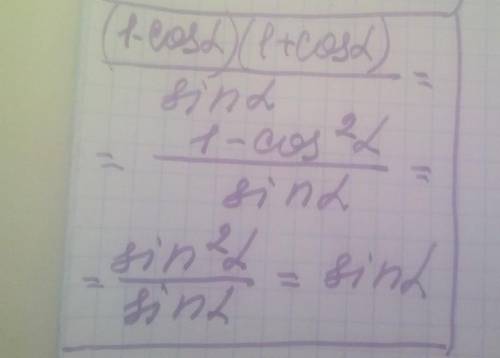 (1-cosα)(1+cosα)/sinα =
= 1-cos²α/sinα =
= sin²α/sinα = sinα